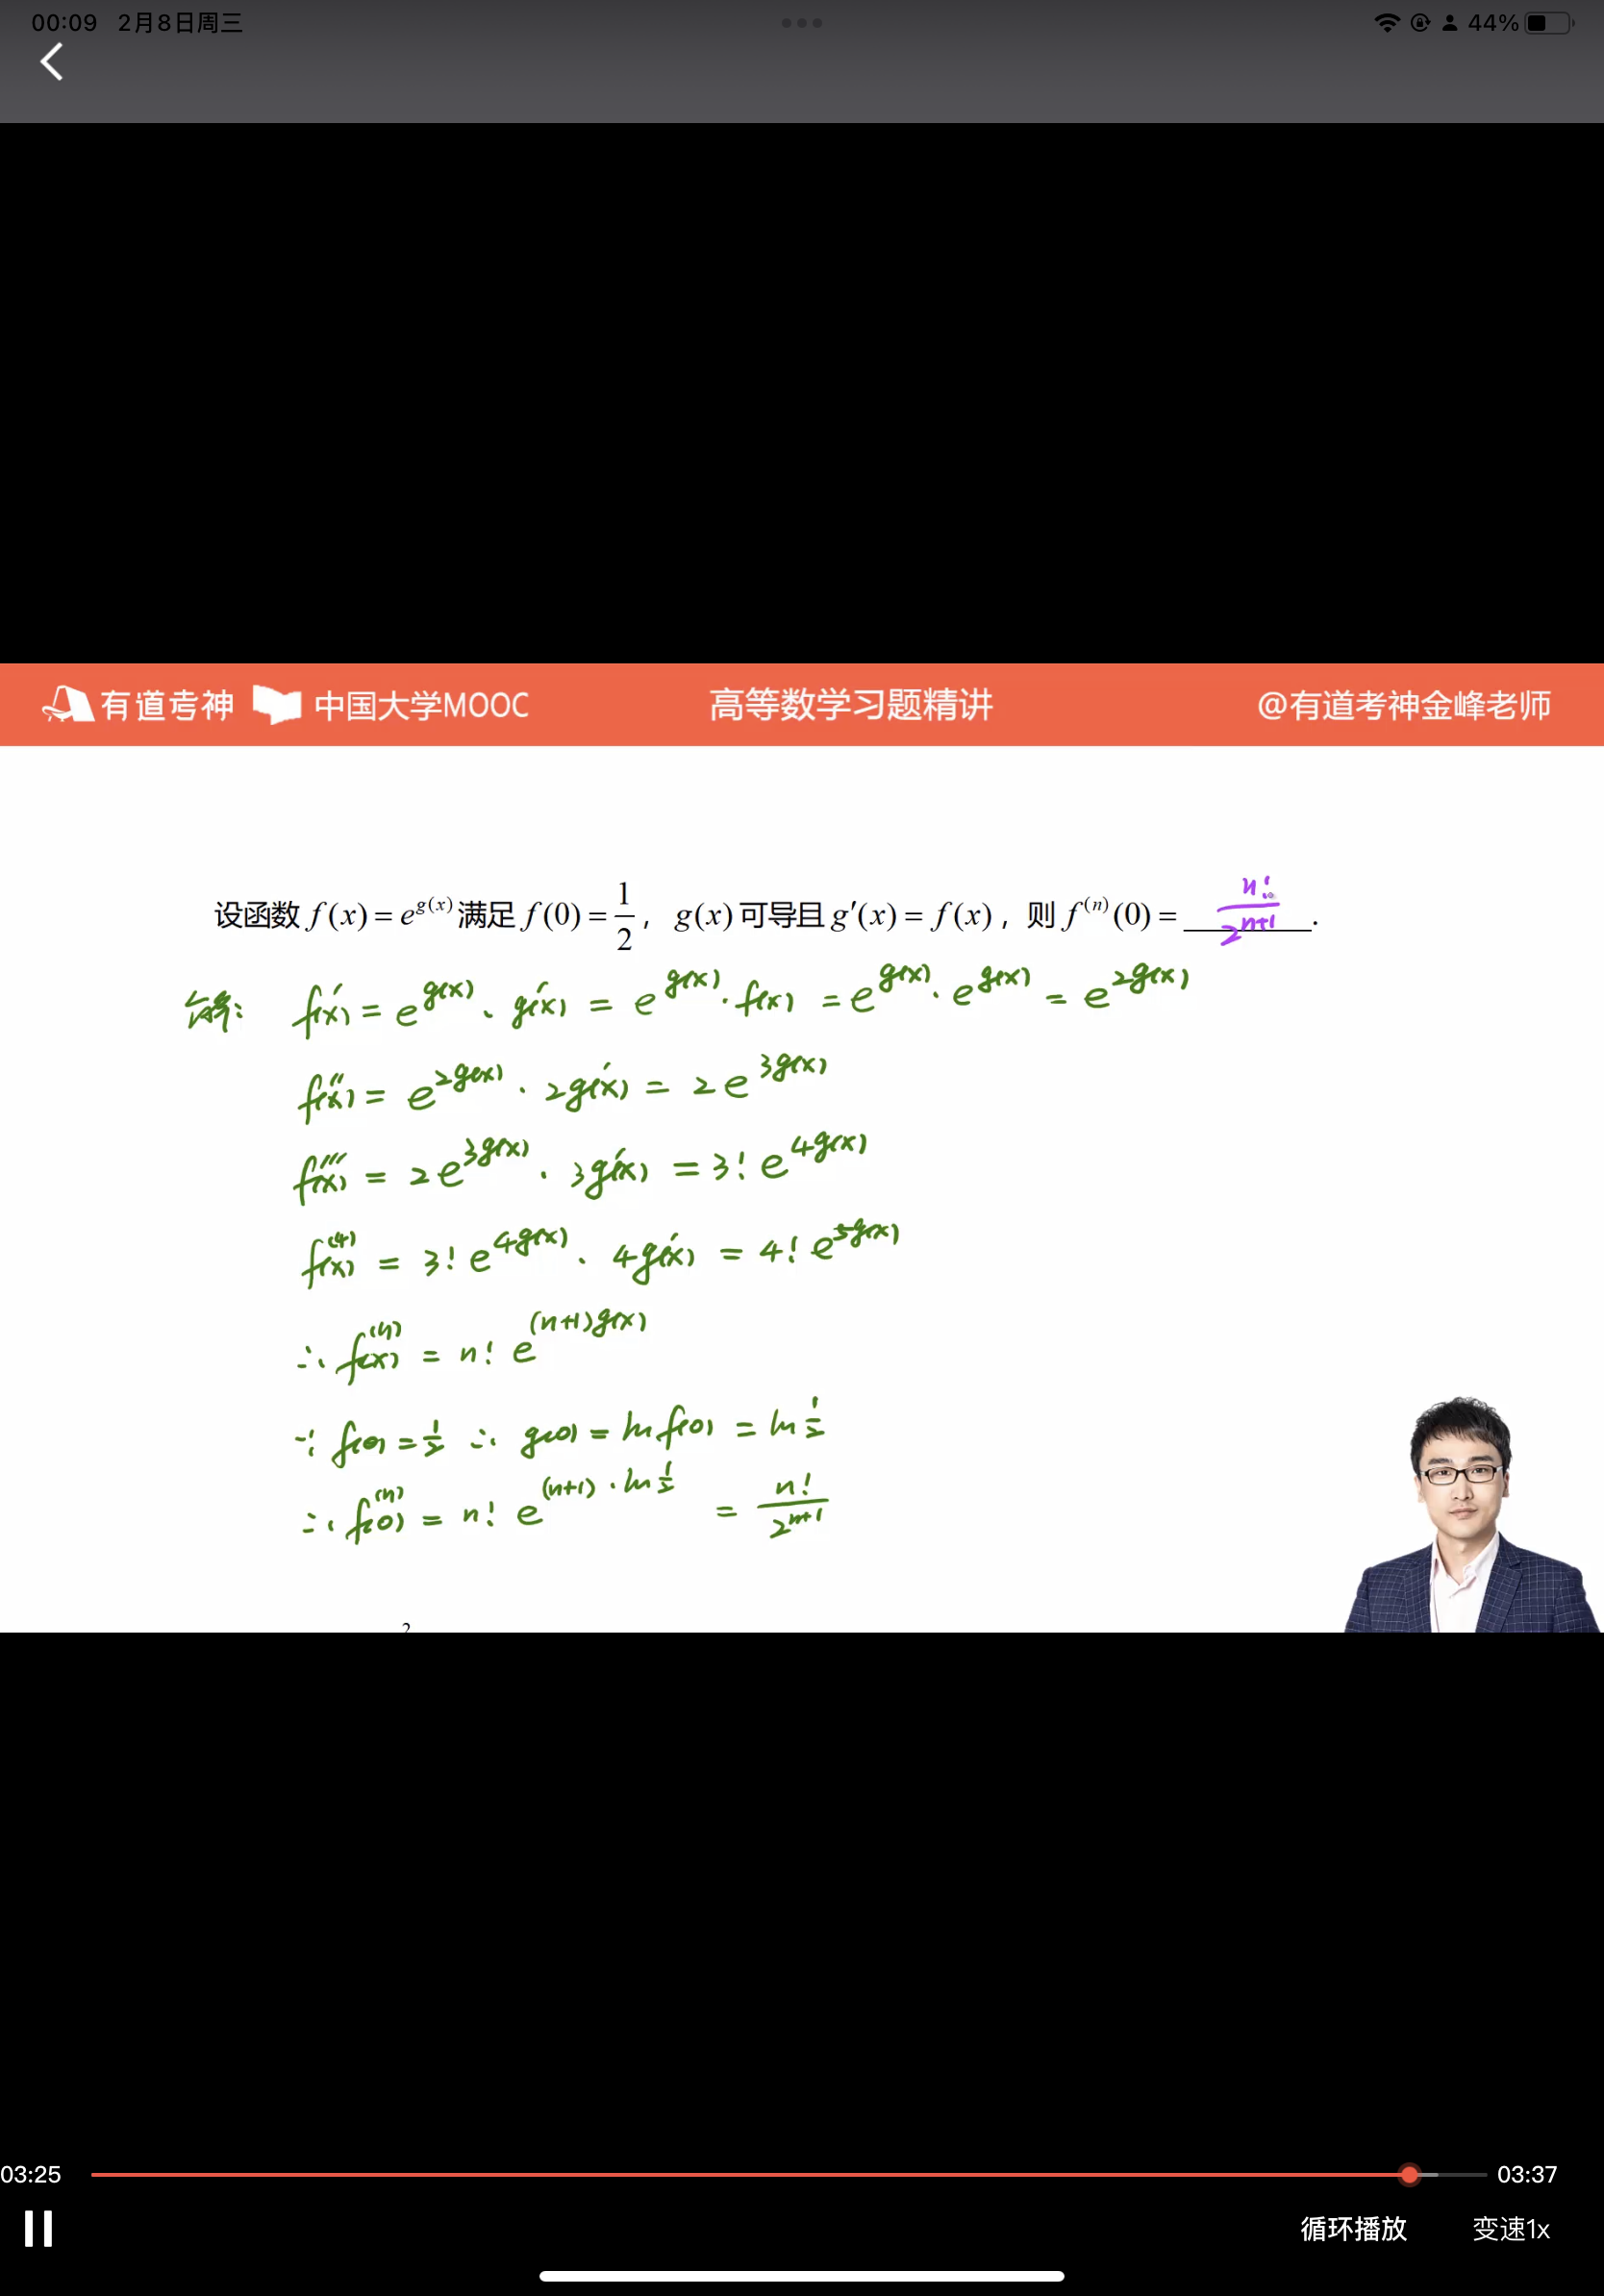 00:09 2月8日周三 44%
有道考神 中国大学MOOC 高等数学习题精讲 @有道考神金峰老师
设函数 f(x) = e^{g(x)} 满足 f(0) = 1/2， g(x) 可导且 g′(x) = f(x)，则 f^{(n)}(0) = n!/2^{n+1} .
解: f′(x) = e^{g(x)} · g′(x) = e^{g(x)} · f(x) = e^{g(x)} · e^{g(x)} = e^{2g(x)}
f″(x) = e^{2g(x)} · 2g′(x) = 2e^{3g(x)}
f‴(x) = 2e^{3g(x)} · 3g′(x) = 3! e^{4g(x)}
f^{(4)}(x) = 3! e^{4g(x)} · 4g′(x) = 4! e^{5g(x)}
∴ f^{(n)}(x) = n! e^{(n+1)g(x)}
∵ f(0) = 1/2 ∴ g(0) = ln f(0) = ln 1/2
∴ f^{(n)}(0) = n! e^{(n+1)·ln 1/2} = n!/2^{n+1}
2
03:25 03:37
循环播放 变速1x